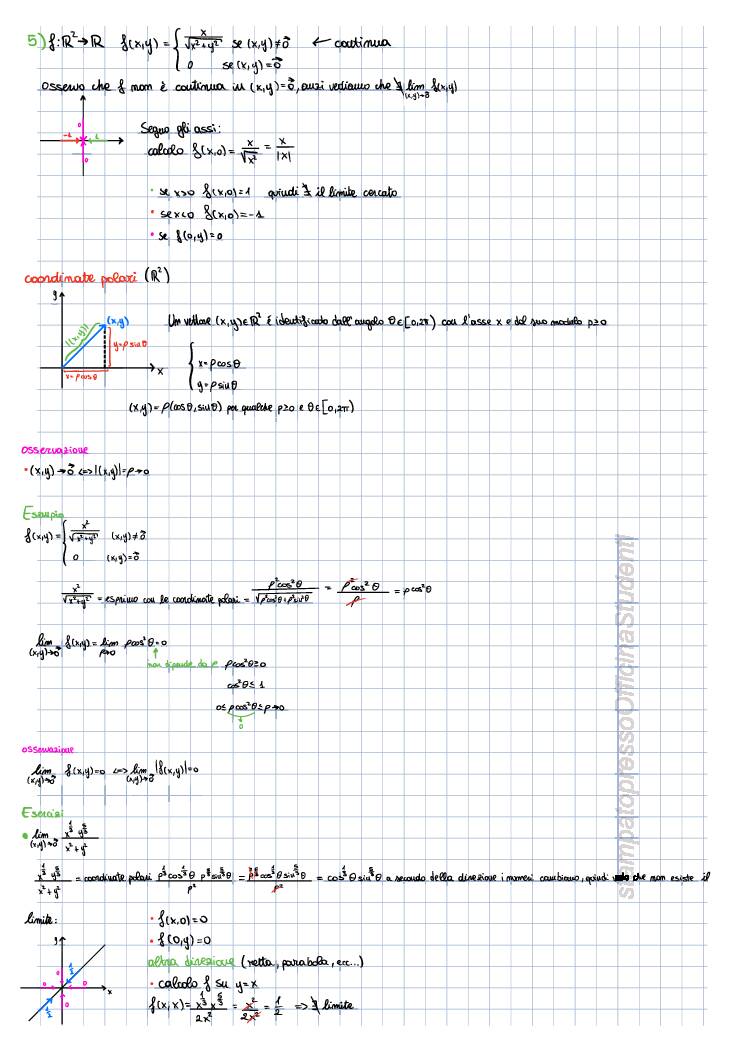 5) f: ℝ² → ℝ f(x,y) = { x/√(x²+y²) se (x,y) ≠ 0⃗ ← continua
0 se (x,y) = 0⃗
Osservo che f non è continua in (x,y) = 0⃗, anzi vediamo che ∄ lim (x,y)→0⃗ f(x,y)
Seguo gli assi:
calcolo f(x,0) = x/√x² = x/|x|
0
-1 1
0
• se x>0 f(x,0) = 1 quindi ∄ il limite cercato
• se x<0 f(x,0) = -1
• se f(0,y) = 0
coordinate polari (ℝ²)
y
(x,y)
|(x,y)|
y = ρ sin θ
x
x = ρ cos θ
Un vettore (x,y) ∈ ℝ² è identificato dall'angolo θ ∈ [0,2π) con l'asse x e dal suo modulo ρ ≥ 0
{ x = ρ cos θ
y = ρ sin θ
(x,y) = ρ(cos θ, sin θ) per qualche ρ ≥ 0 e θ ∈ [0,2π)
osservazione
• (x,y) → 0⃗ <=> |(x,y)| = ρ → 0
Esempio
f(x,y) = { x²/√(x²+y²) (x,y) ≠ 0⃗
0 (x,y) = 0⃗
x²/√(x²+y²) = esprimo con le coordinate polari = ρ² cos² θ/√(ρ² cos² θ + ρ² sin² θ) = ρ² cos² θ/ρ = ρ cos² θ
lim (x,y)→0⃗ f(x,y) = lim ρ→0 ρ cos² θ = 0
non dipende da ρ ρ cos² θ ≥ 0
cos² θ ≤ 1
0 ≤ ρ cos² θ ≤ ρ → 0
0
osservazione
lim (x,y)→0⃗ f(x,y) = 0 <=> lim (x,y)→0⃗ |f(x,y)| = 0
Esercizi
• lim (x,y)→0⃗ x^(1/3) y^(5/3)/(x²+y²)
x^(1/3) y^(5/3)/(x²+y²) = coordinate polari ρ^(1/3) cos^(1/3) θ ρ^(5/3) sin^(5/3) θ/ρ² = ρ^(6/3) cos^(1/3) θ sin^(5/3) θ/ρ² = cos^(1/3) θ sin^(5/3) θ a secondo della direzione i numeri cambiano, quindi che non esiste il
limite:
• f(x,0) = 0
• f(0,y) = 0
altra direzione (retta, parabola, ecc...)
• calcolo f su y = x
f(x,x) = x^(1/3) x^(5/3)/2x² = x²/2x² = 1/2 => ∄ limite
y
0 1/2
0 0
x
1/2 0
stampatopressoOfficinaStudenti